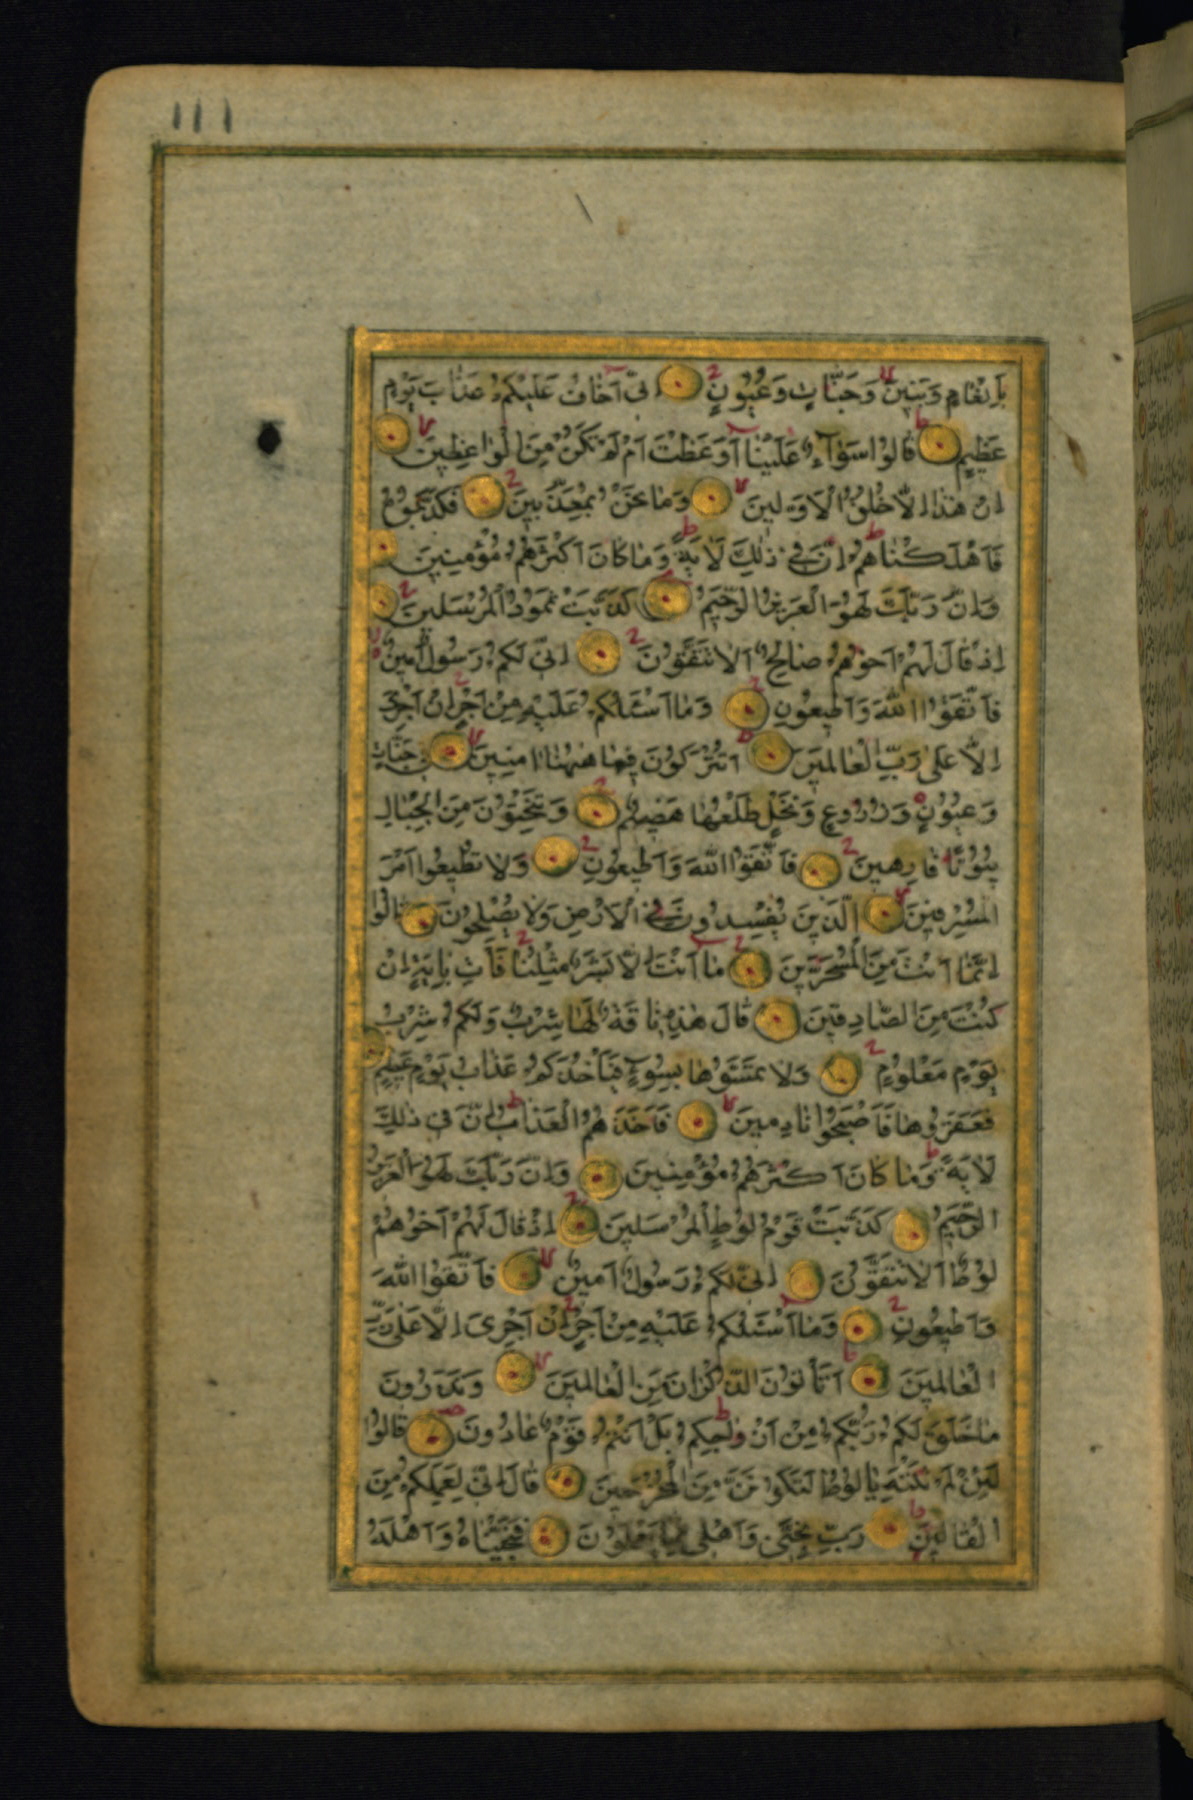 ١١١
بِاَنْعَامٍ وَبَنِينَ وَجَنَّاتٍ وَعُيُونٍ اِنّى اَخَافُ عَلَيْكُمْ عَذَابَ يَوْمٍ
عَظِيمٍ قَالُوا سَوَآءٌ عَلَيْنَا اَوَعَظْتَ اَمْ لَمْ تَكُنْ مِنَ الْوَاعِظِينَ
اِنْ هٰذَا اِلَّا خُلُقُ الْاَوَّلِينَ وَمَا نَحْنُ بِمُعَذَّبِينَ فَكَذَّبُوهُ
فَاَهْلَكْنَاهُمْ اِنَّ فِى ذٰلِكَ لَاٰيَةً وَمَا كَانَ اَكْثَرُهُمْ مُؤْمِنِينَ
وَاِنَّ رَبَّكَ لَهُوَ الْعَزِيزُ الرَّحِيمُ كَذَّبَتْ ثَمُودُ الْمُرْسَلِينَ
اِذْ قَالَ لَهُمْ اَخُوهُمْ صَالِحٌ اَلَا تَتَّقُونَ اِنِّى لَكُمْ رَسُولٌ اَمِينٌ
فَاتَّقُوا اللّٰهَ وَاَطِيعُونِ وَمَا اَسْئَلُكُمْ عَلَيْهِ مِنْ اَجْرٍ اِنْ اَجْرِىَ
اِلَّا عَلٰى رَبِّ الْعَالَمِينَ اَتُتْرَكُونَ فِيمَا هٰهُنَا اٰمِنِينَ فِى جَنَّاتٍ
وَعُيُونٍ وَزُرُوعٍ وَنَخْلٍ طَلْعُهَا هَضِيمٌ وَتَنْحِتُونَ مِنَ الْجِبَالِ
بُيُوتًا فَارِهِينَ فَاتَّقُوا اللّٰهَ وَاَطِيعُونِ وَلَا تُطِيعُوا اَمْرَ
الْمُسْرِفِينَ اَلَّذِينَ يُفْسِدُونَ فِى الْاَرْضِ وَلَا يُصْلِحُونَ قَالُوا
اِنَّمَا اَنْتَ مِنَ الْمُسَحَّرِينَ مَا اَنْتَ اِلَّا بَشَرٌ مِثْلُنَا فَاْتِ بِاٰيَةٍ اِنْ
كُنْتَ مِنَ الصَّادِقِينَ قَالَ هٰذِهِ نَاقَةٌ لَهَا شِرْبٌ وَلَكُمْ شِرْبُ
يَوْمٍ مَعْلُومٍ وَلَا تَمَسُّوهَا بِسُوءٍ فَيَأْخُذَكُمْ عَذَابُ يَوْمٍ عَظِيمٍ
فَعَقَرُوهَا فَاَصْبَحُوا نَادِمِينَ فَاَخَذَهُمُ الْعَذَابُ اِنَّ فِى ذٰلِكَ
لَاٰيَةً وَمَا كَانَ اَكْثَرُهُمْ مُؤْمِنِينَ وَاِنَّ رَبَّكَ لَهُوَ الْعَزِيزُ
الرَّحِيمُ كَذَّبَتْ قَوْمُ لُوطٍ الْمُرْسَلِينَ اِذْ قَالَ لَهُمْ اَخُوهُمْ
لُوطٌ اَلَا تَتَّقُونَ اِنِّى لَكُمْ رَسُولٌ اَمِينٌ فَاتَّقُوا اللّٰهَ
وَاَطِيعُونِ وَمَا اَسْئَلُكُمْ عَلَيْهِ مِنْ اَجْرٍ اِنْ اَجْرِىَ اِلَّا عَلٰى رَبِّ
الْعَالَمِينَ اَتَأْتُونَ الذُّكْرَانَ مِنَ الْعَالَمِينَ وَتَذَرُونَ
مَا خَلَقَ لَكُمْ رَبُّكُمْ مِنْ اَزْوَاجِكُمْ بَلْ اَنْتُمْ قَوْمٌ عَادُونَ قَالُوا
لَئِنْ لَمْ تَنْتَهِ يَا لُوطُ لَتَكُونَنَّ مِنَ الْمُخْرَجِينَ قَالَ اِنِّى لِعَمَلِكُمْ مِنَ
الْقَالِينَ رَبِّ نَجِّنِى وَاَهْلِى مِمَّا يَعْمَلُونَ فَنَجَّيْنَاهُ وَاَهْلَهُ